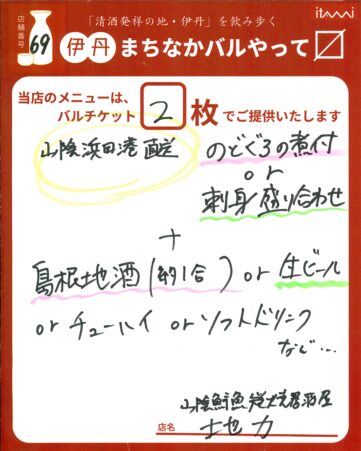 「清酒発祥の地・伊丹」を飲み歩く
itami
店舗番号
69
伊丹 まちなかバルやって
当店のメニューは、
バルチケット 2 枚でご提供いたします
山陰浜田港直送 のどぐろの煮付
or
刺身盛り合わせ
+
島根地酒(約1合) or 生ビール
or チューハイ or ソフトドリンク
など…
山陰鮮魚炭火焼居酒屋
店名 地力